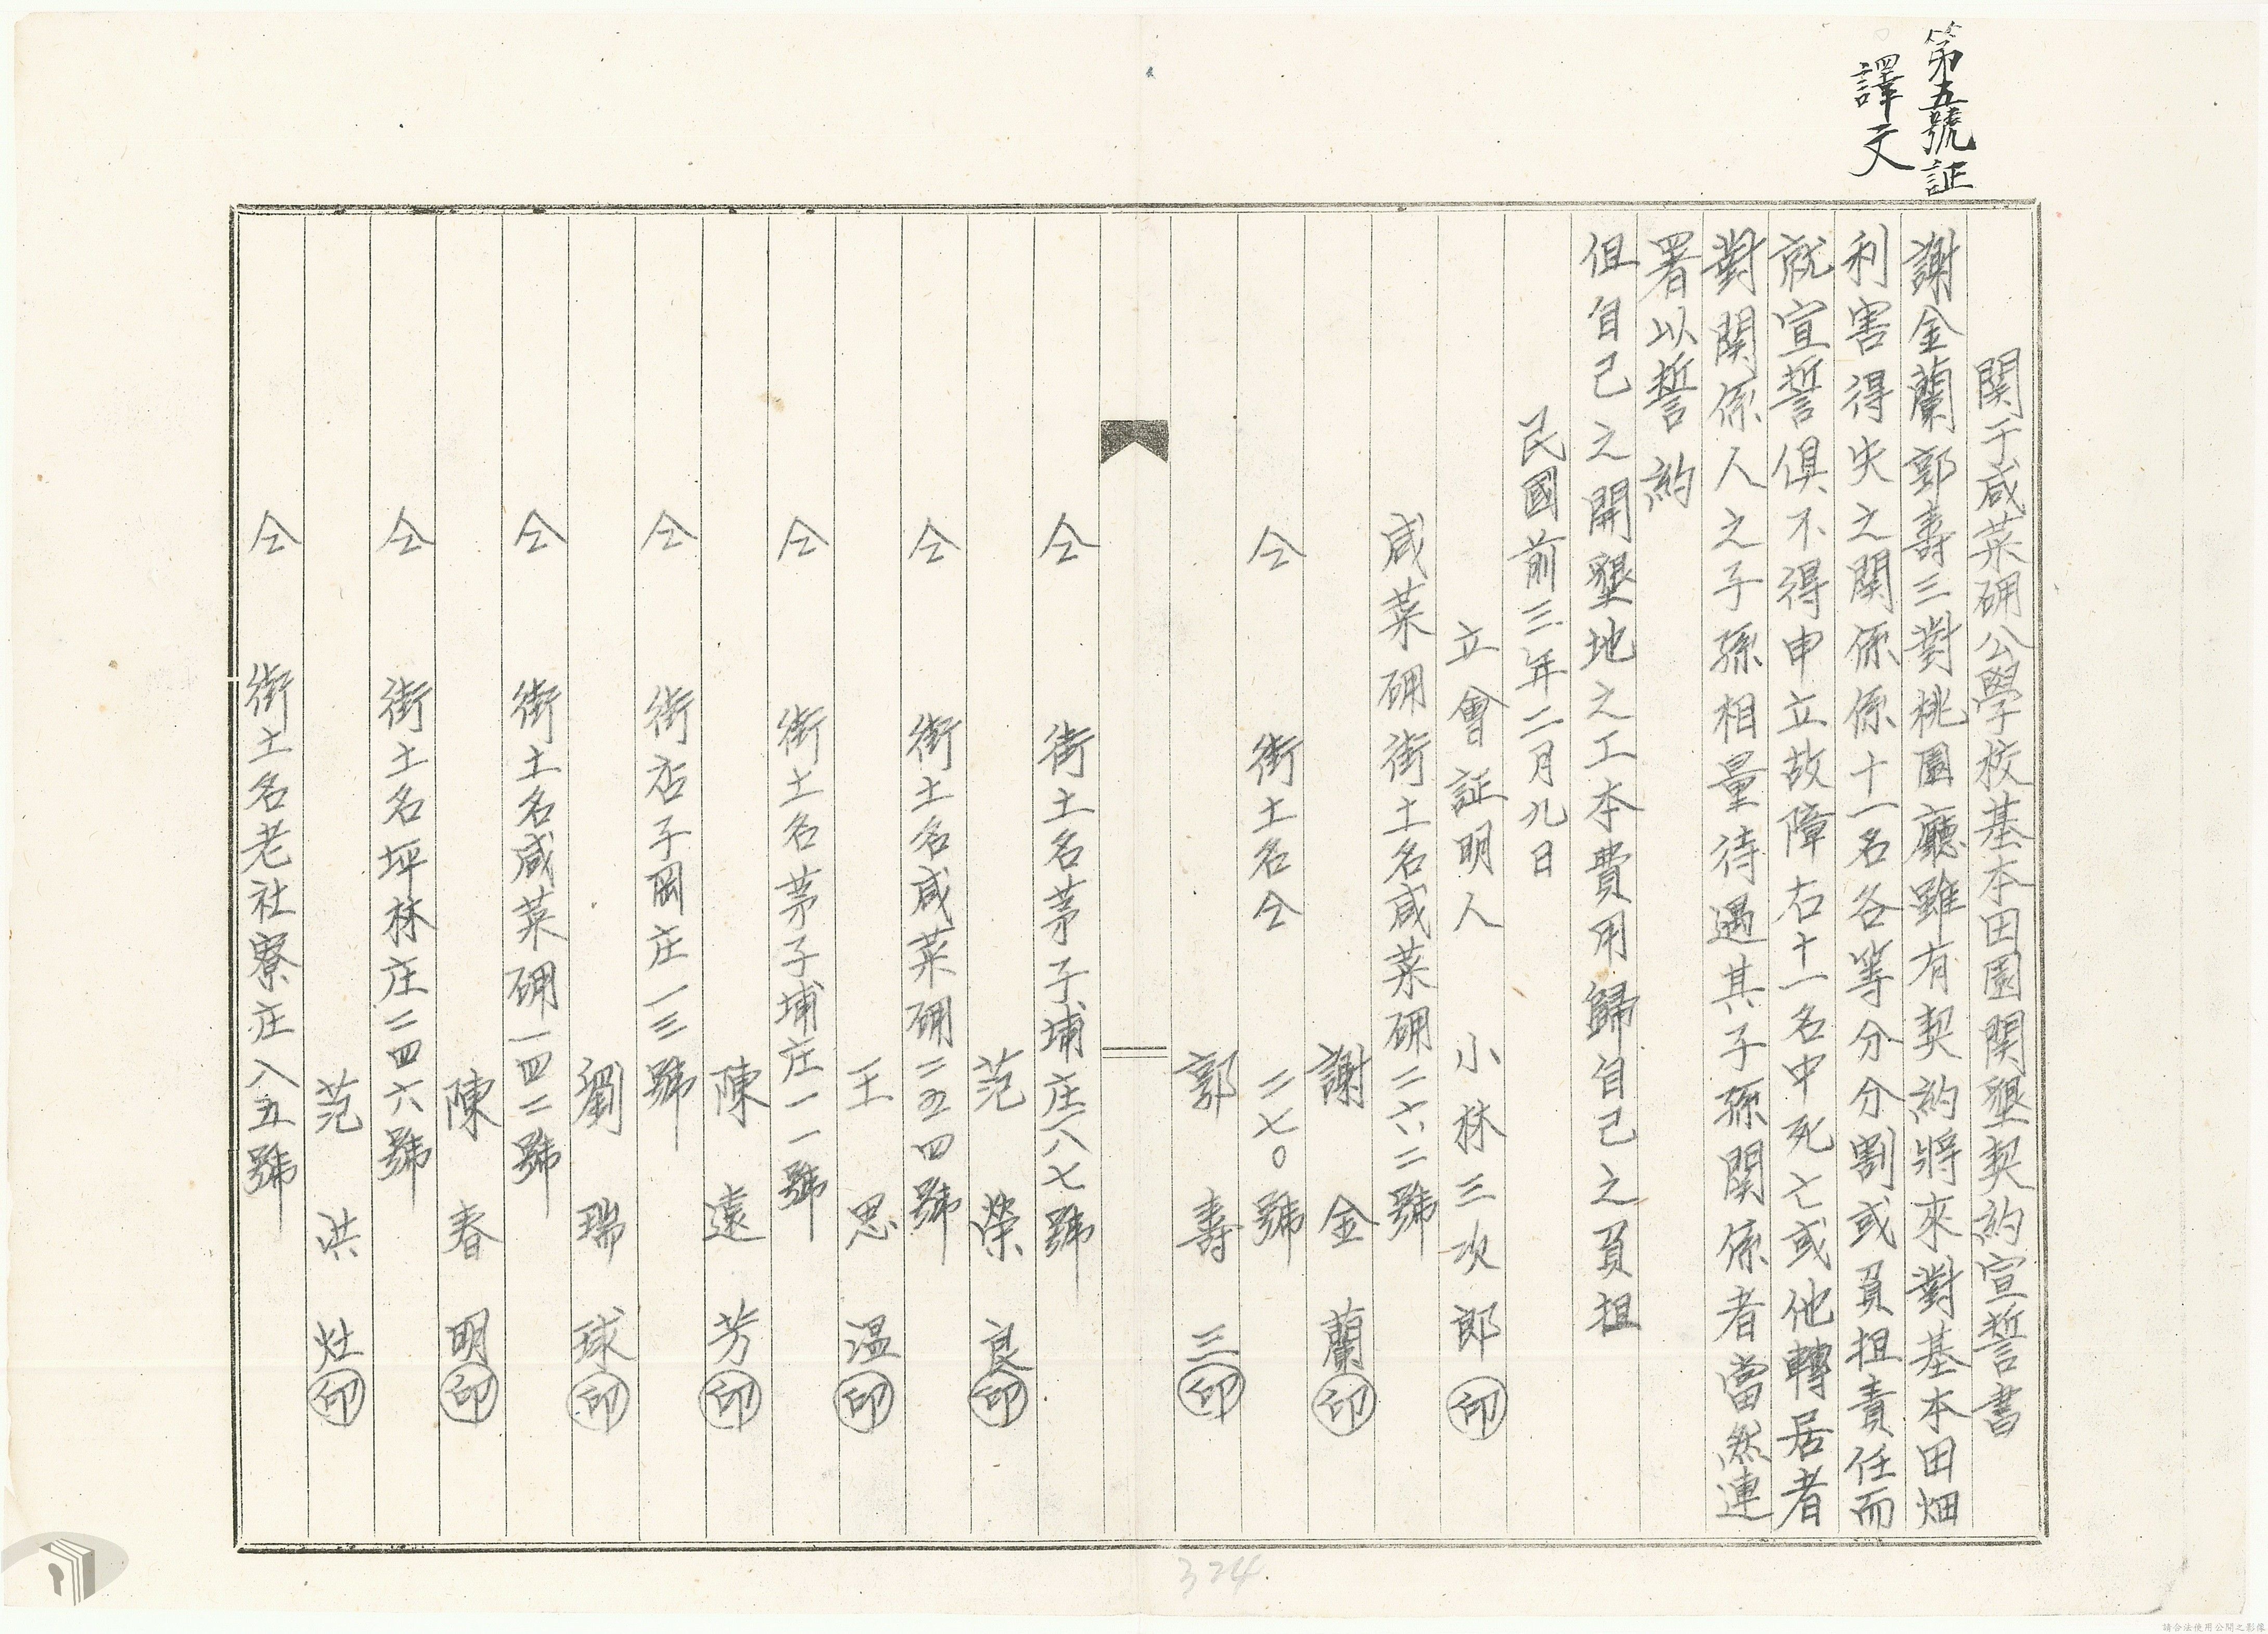 第五號証
譯文
関于咸菜硼公學校基本田園関墾契約宣誓書
謝金蘭郭壽三對桃園廳雖有契約將來對基本田畑
利害得失之関係係十一名各等分分割或負担責任而
就宣誓俱不得申立故障右十一名中死亡或他轉居者
對関係人之子孫相量待遇其子孫関係者當然連
署以誓約
但自己之開墾地之工本費用歸自己之負担
民國前三年二月九日
立會証明人 小林三次郎 印
咸菜硼街土名咸菜硼二六二號
謝金蘭 印
仝 街土名仝 二七〇號
郭壽三 印
仝 街土名茅子埔庄八七號
范榮良 印
仝 街土名咸菜硼二五四號
王思溫 印
仝 街土名茅子埔庄一一號
陳遠芳 印
仝 街店子岡庄一三號
劉瑞球 印
仝 街土名咸菜硼一四二號
陳春明 印
仝 街土名坪林庄二四六號
范洪灶 印
仝 街土名老社寮庄八五號
324
請合法使用公開之影像